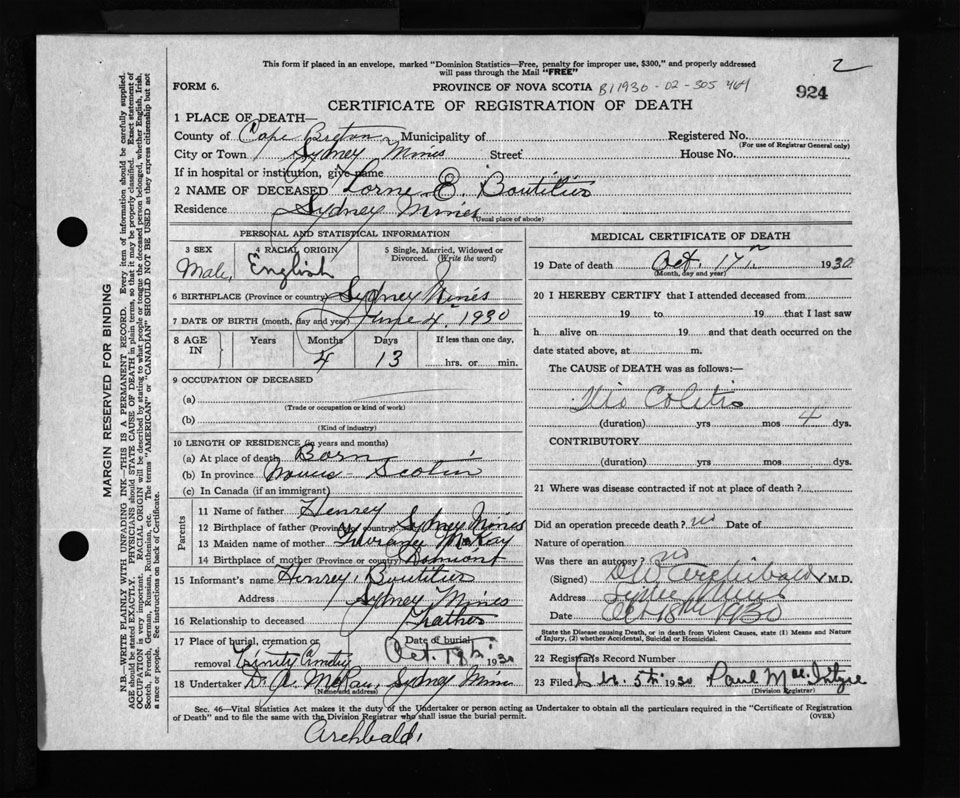 This form if placed in an envelope, marked "Dominion Statistics—Free, penalty for improper use, $300," and properly addressed
will pass through the Mail "FREE"
2
FORM 6.
PROVINCE OF NOVA SCOTIA
B11930-02-305 464
924
CERTIFICATE OF REGISTRATION OF DEATH
1 PLACE OF DEATH—
County of Cape Breton Municipality of
Registered No.
(For use of Registrar General only)
City or Town Sydney Mines Street House No.
If in hospital or institution, give name
2 NAME OF DECEASED Lorne E. Boutilier
Residence Sydney Mines
(Usual place of abode)
PERSONAL AND STATISTICAL INFORMATION
3 SEX
Male
4 RACIAL ORIGIN
English
5 Single, Married, Widowed or
Divorced. (Write the word)
6 BIRTHPLACE (Province or country) Sydney Mines
7 DATE OF BIRTH (month, day and year) June 4, 1930
8 AGE
IN
Years Months Days If less than one day,
4 13 hrs. or min.
9 OCCUPATION OF DECEASED
(a)
(Trade or occupation or kind of work)
(b)
(Kind of industry)
10 LENGTH OF RESIDENCE (in years and months)
(a) At place of death Born
(b) In province Nova Scotia
(c) In Canada (if an immigrant)
Parents
11 Name of father Henrey
12 Birthplace of father (Province or country) Sydney Mines
13 Maiden name of mother McKay
14 Birthplace of mother (Province or country)
15 Informant's name Henrey Boutilier
Address Sydney Mines
16 Relationship to deceased Father
17 Place of burial, cremation or
removal Trinity Cemetry
Date of burial
Oct. 19th 1930
18 Undertaker D. A. McRae, Sydney Mines
(Name and address)
MEDICAL CERTIFICATE OF DEATH
19 Date of death Oct. 17th 1930
(Month, day and year)
20 I HEREBY CERTIFY that I attended deceased from
19 to 19 that I last saw
h alive on 19 and that death occurred on
date stated above, at m.
The CAUSE of DEATH was as follows:—
Ilio Colitis
(duration) yrs mos 4 dys.
CONTRIBUTORY
(duration) yrs mos dys.
21 Where was disease contracted if not at place of death?
Did an operation precede death? no Date of
Nature of operation
Was there an autopsy? no
(Signed) D.W. Archibald M.D.
Address Sydney Mines
Date Oct 18th 1930
State the Disease causing Death, or in death from Violent Causes, state (1) Means and Nature
of Injury, (2) whether Accidental, Suicidal or Homicidal.
22 Registrar's Record Number
23 Filed 5th 1930 Paul MacIntyre
(Division Registrar)
Sec. 46—Vital Statistics Act makes it the duty of the Undertaker or person acting as Undertaker to obtain all the particulars required in the "Certificate of Registration
of Death" and to file the same with the Division Registrar who shall issue the burial permit.
(OVER)
Archbald,
MARGIN RESERVED FOR BINDING
N.B.—WRITE PLAINLY WITH UNFADING INK—THIS IS A PERMANENT RECORD. Every item of information should be carefully supplied.
AGE should be stated EXACTLY. PHYSICIANS should STATE CAUSE OF DEATH in plain terms, so that it may be properly classified. Exact statement of
OCCUPATION is very important. RACIAL ORIGIN will be described by stating to what people or tongue the deceased person belonged, whether English, Irish,
Scotch, French, German, Russian, Ruthenian, etc. The terms "AMERICAN" or "CANADIAN" SHOULD NOT BE USED as they express citizenship but not
a race or people. See instructions on back of Certificate.